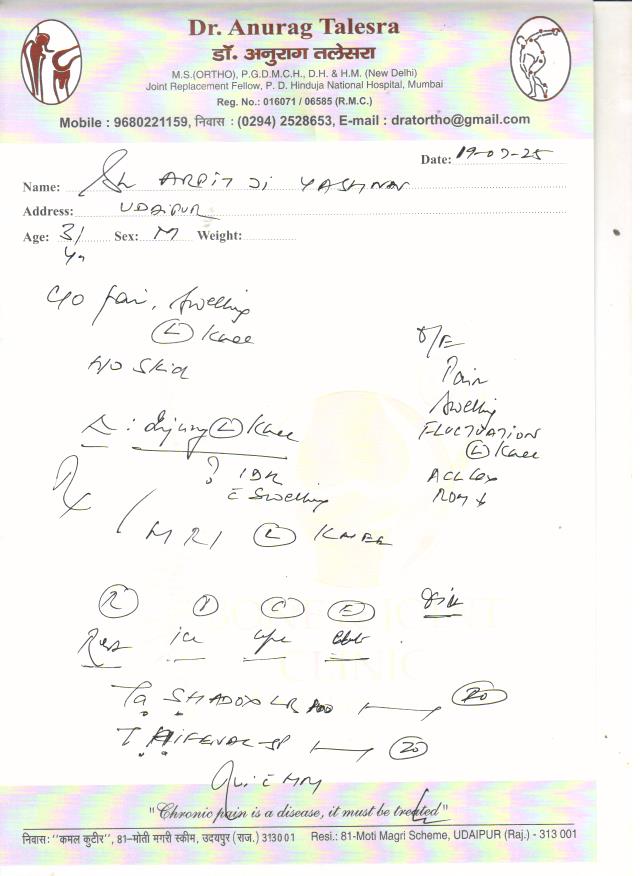 Dr. Anurag Talesra
डॉ. अनुराग तलेसरा
M.S.(ORTHO), P.G.D.M.C.H., D.H. & H.M. (New Delhi)
Joint Replacement Fellow, P. D. Hinduja National Hospital, Mumbai
Reg. No.: 016071 / 06585 (R.M.C.)
Mobile : 9680221159, निवास : (0294) 2528653, E-mail : dratortho@gmail.com
Date: 19-07-25
Name: Sh ARPIT JI
Address: UDAIPUR
Age: 31 Sex: M Weight:
Yr
C/O Pain, Swelling
(L) Knee
H/O Skid
O/E
Pain
Swelling
FLUCTUATION
(L) Knee
ACL
ROM
: Injury (L) Knee
? IDK
c Swelling
Rx
MRI (L) KNEE
(R) (I) (C) (E)
Rest ice
BONE JOINT
CLINIC
(20)
T (20)
"Chronic pain is a disease, it must be treated"
निवास: "कमल कुटीर", 81-मोती मगरी स्कीम, उदयपुर (राज.) 313001 Resi.: 81-Moti Magri Scheme, UDAIPUR (Raj.) - 313 001